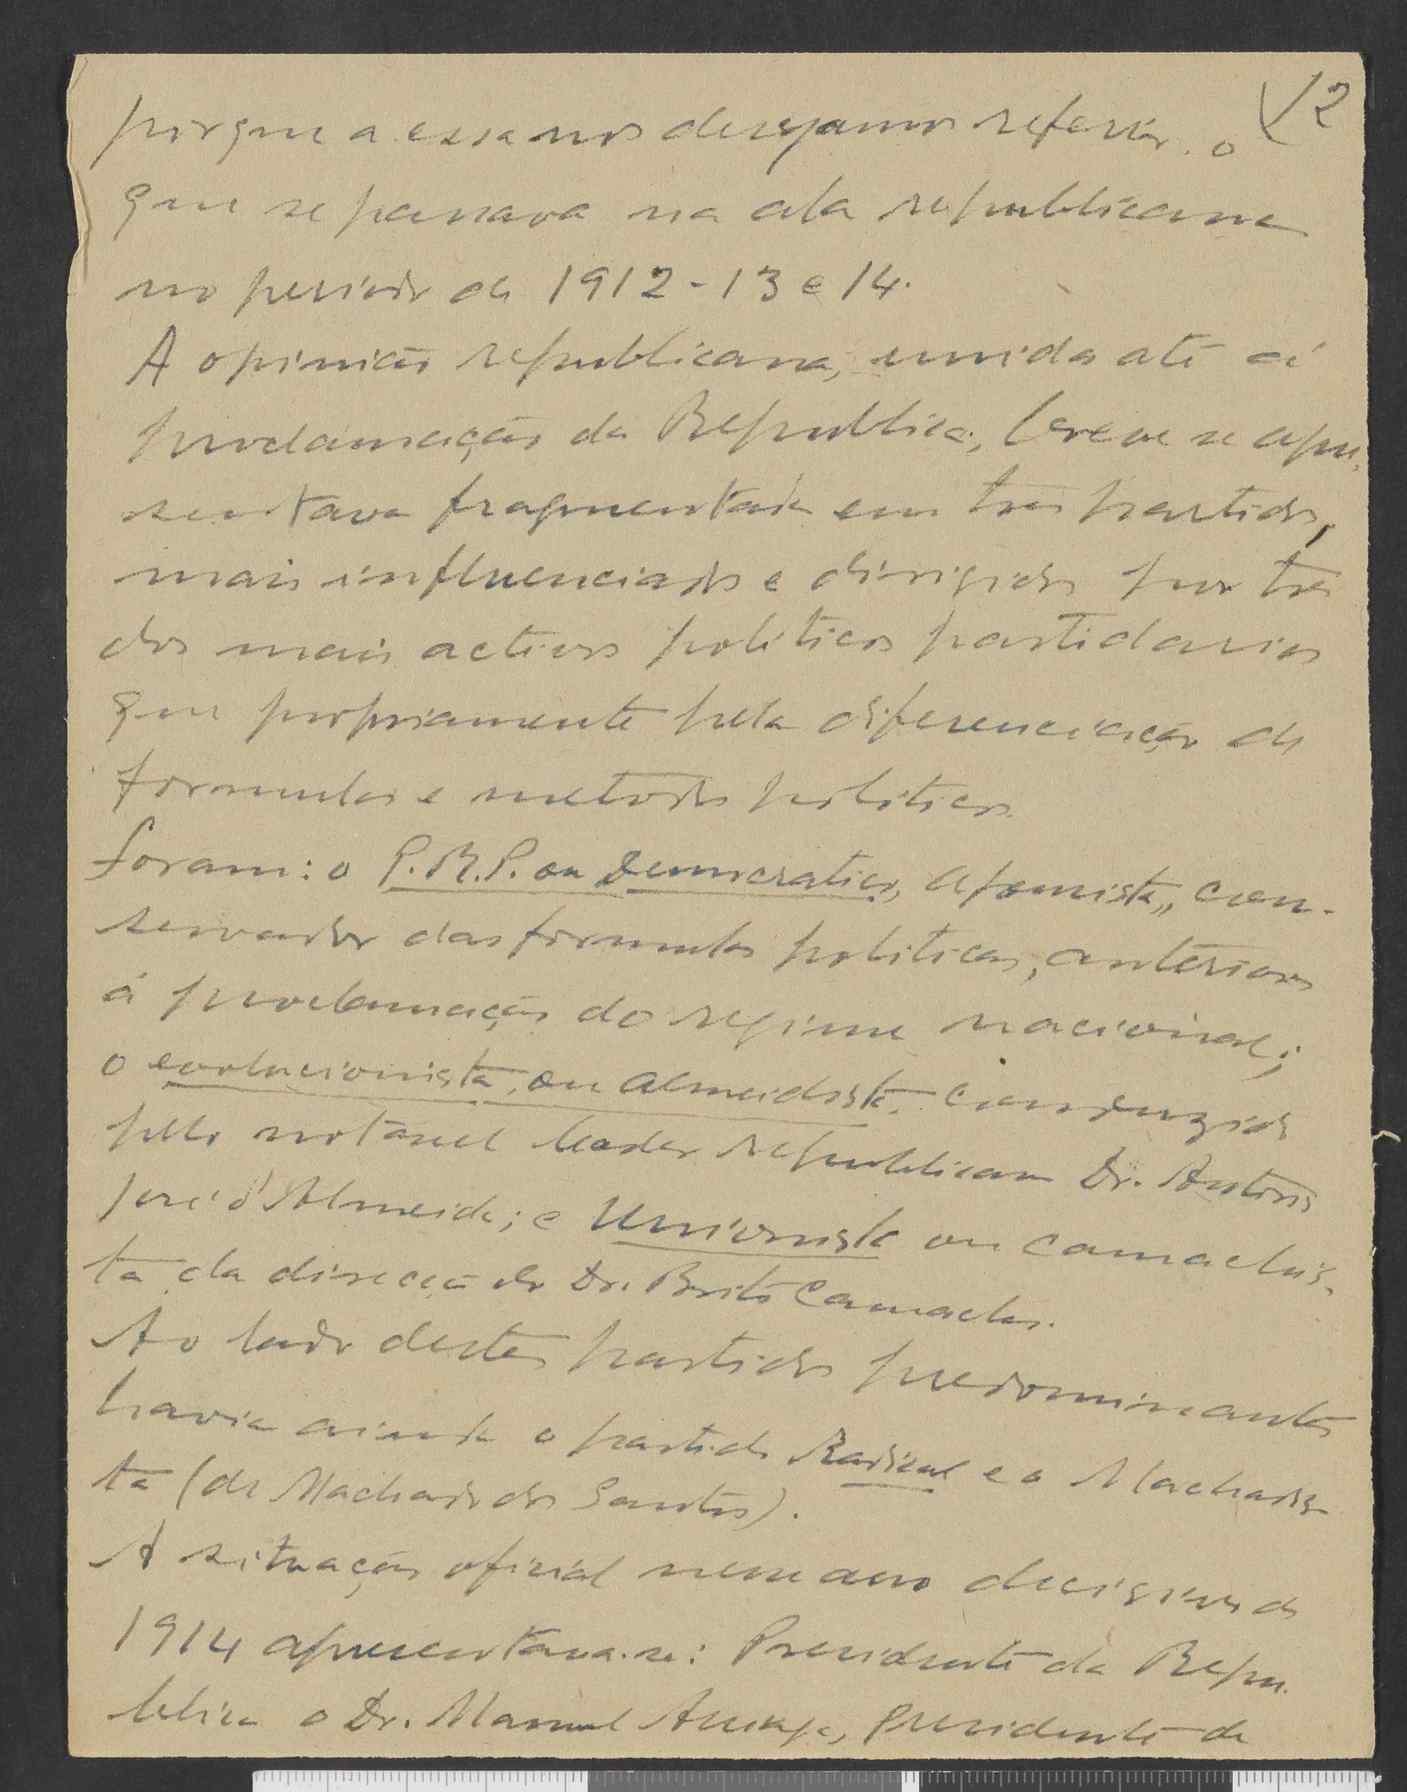 12
porque a essa nos desejamos referir. o
que se passava na ala republicana
no periodo de 1912-13 e 14.
A opinião republicana, unida até á
proclamação da Republica, breve se apre-
sentava fragmentada em três partidos,
mais influenciados e dirigidos por três
dos mais activos politicos partidarios
que propriamente pela diferenciação de
formulas e metodos politicos.
foram: o P.R.P. ou Democratico, afonsista, con-
servador das formulas politicas, anteriores
á proclamação do regime nacional;
o evolucionista, ou almeidista, conduzido
pelo notavel leader republicano Dr. Antonio
José d'Almeida; e Unionista ou camachis-
ta da direcção do Dr. Brito Camacho.
Ao lado destes partidos predominantes
havia ainda o partido Radical e o Machadis-
ta (de Machado dos Santos).
A situação oficial nesse ano decisivo de
1914 apresentava-se: Presidente da Repu-
blica o Dr. Manuel Arriaga, Presidente de